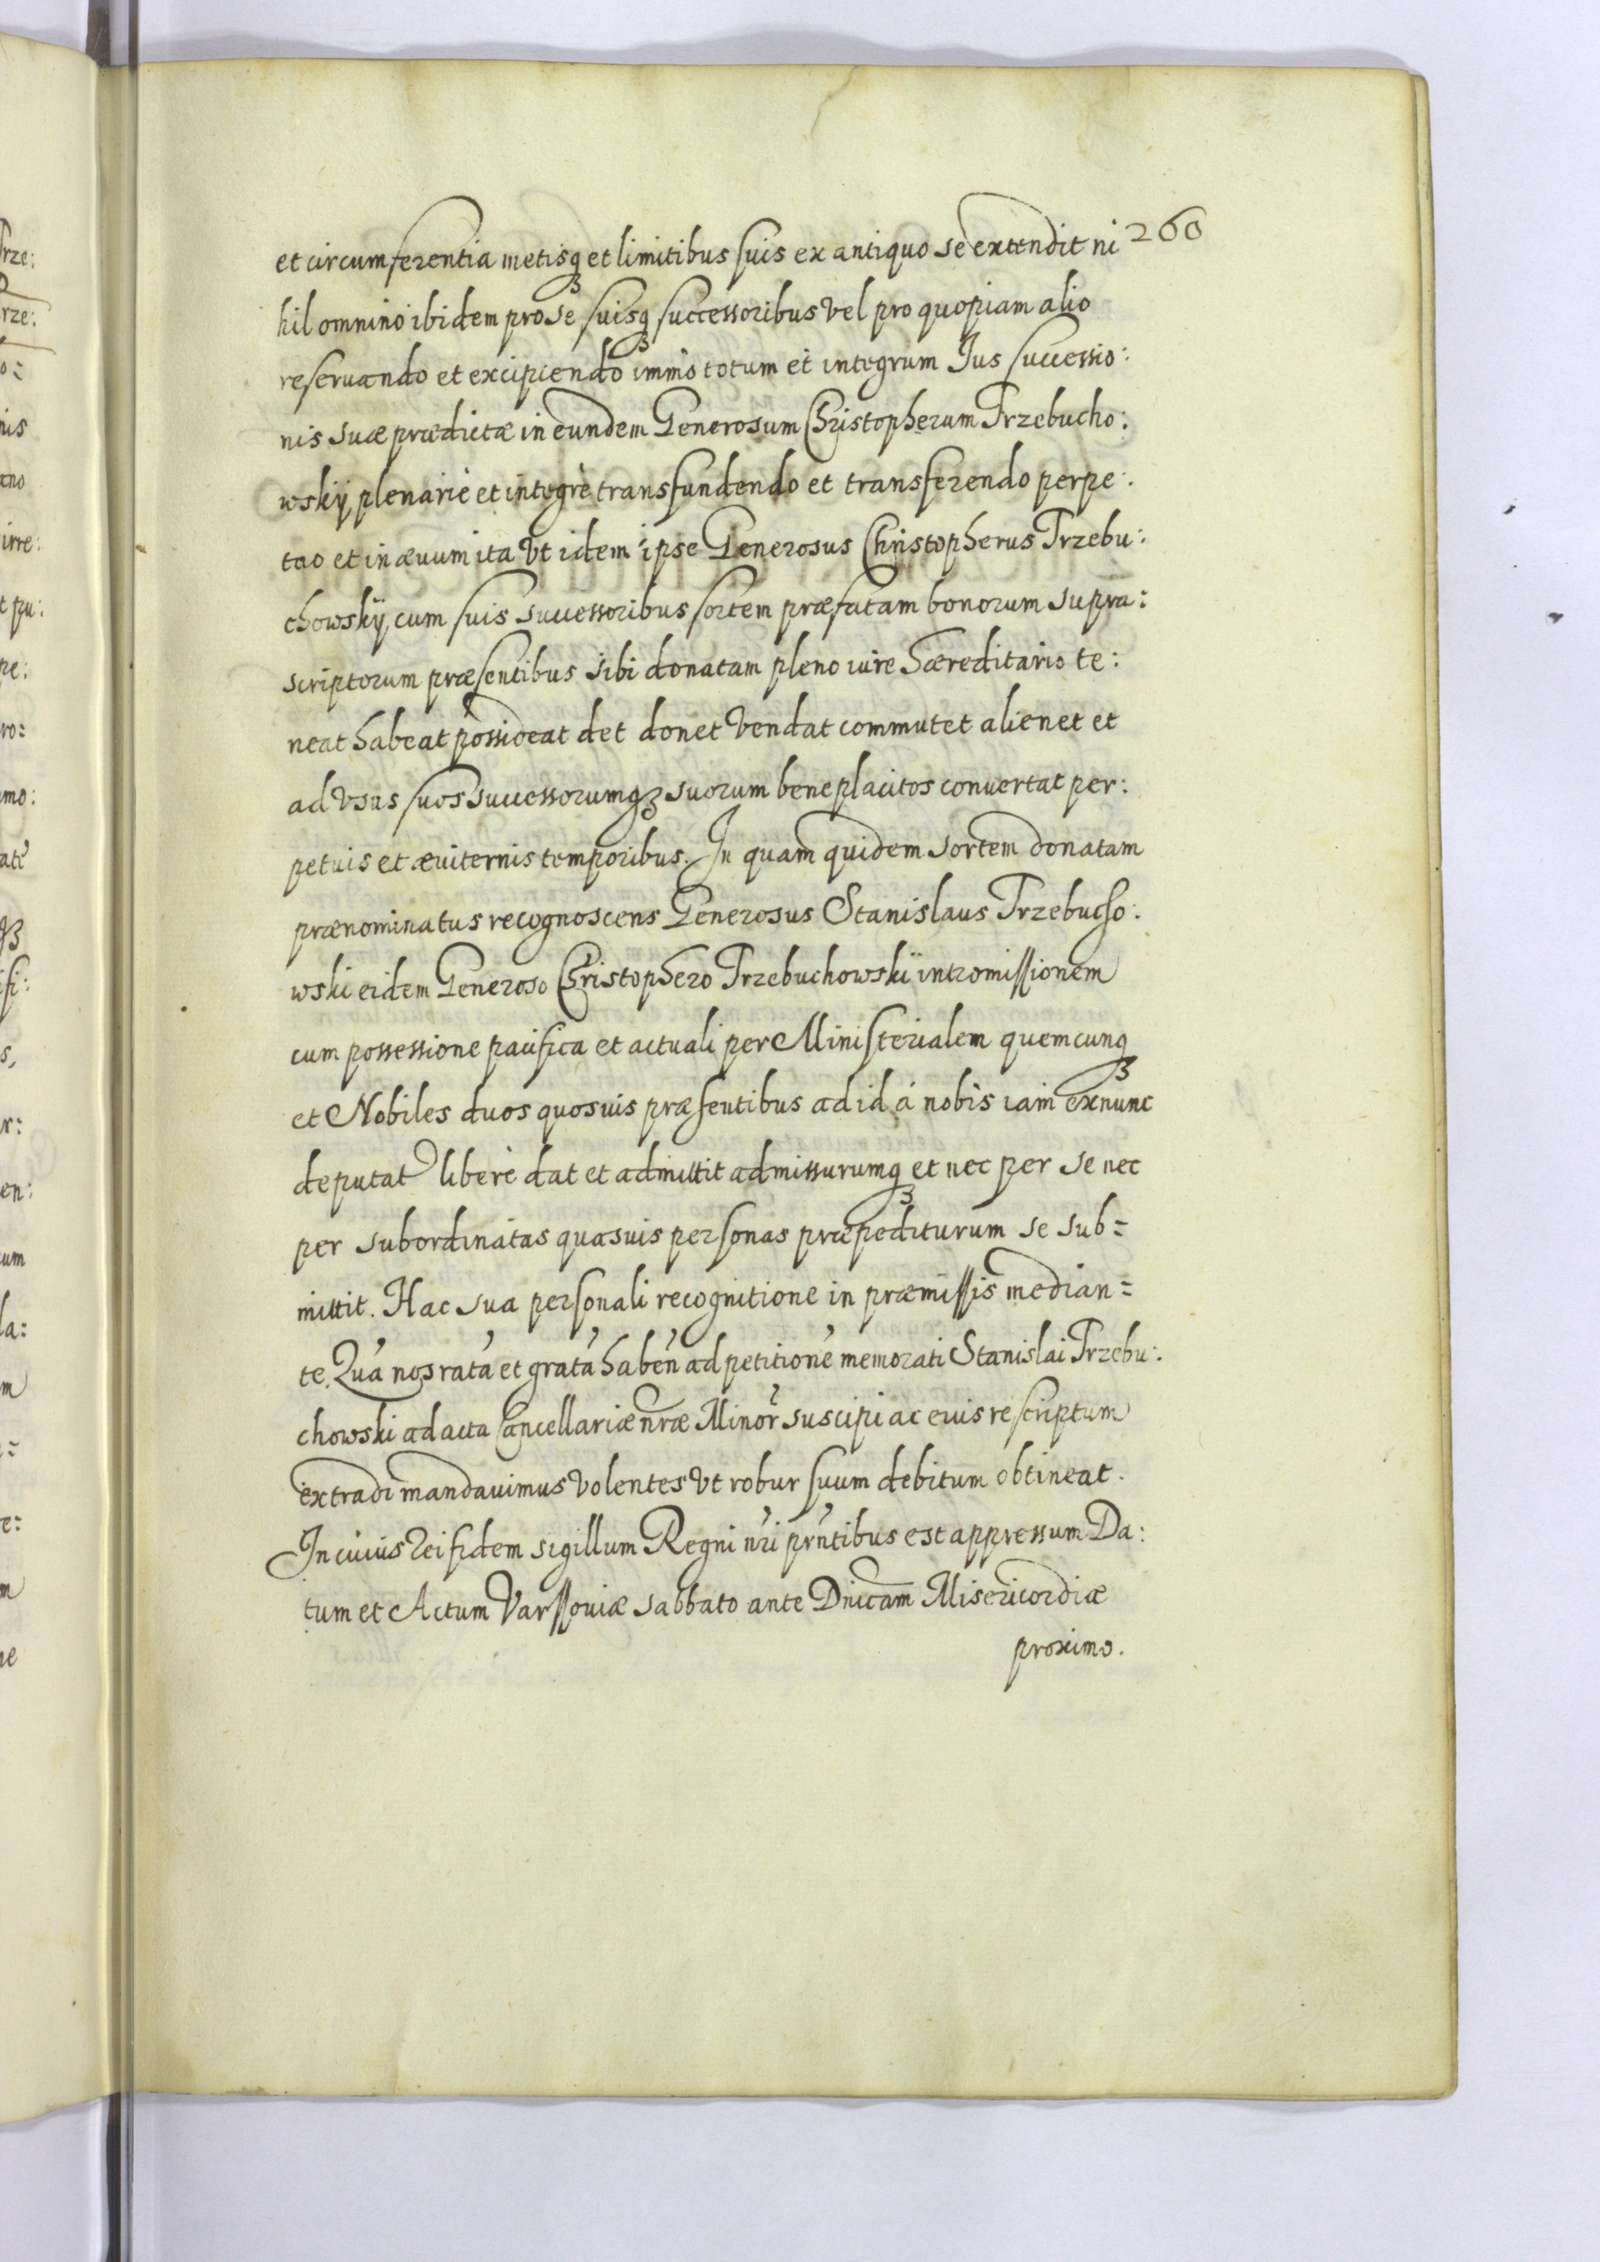 260
et circumferentia metisq₃ et limitibus suis ex antiquo se extendit ni
hil omnino ibidem pro se suisq₃ successoribus vel pro quopiam alio
reseruando et excipiendo immò totum et integrum Jus successio:
nis suæ prædictæ in eundem Generosum Christopherum Trzebucho:
wskÿ plenariè et integrè transfundendo et transferendo perpe:
tuo et in æuum ita vt idem ipse Generosus Christopherus Trzebu:
chowskÿ cum suis successoribus sortem præfatam bonorum supra:
scriptorum præsentibus sibi donatam pleno iure hæreditario te:
neat habeat possideat det donet vendat commutet alienet et
ad vsus suos successorumq₃ suorum beneplacitos conuertat per:
petuis et æuiternis temporibus. In quam quidem sortem donatam
prænominatus recognoscens Generosus Stanislaus Trzebucho:
wski eidem Generoso Christophero Trzebuchowskÿ intromissionem
cum possessione pacifica et actuali per Ministerialem quemcunq₃
et Nobiles duos quosuis præsentibus ad id á nobis iam exnunc
deputat' liberè dat et admittit admissurumq₃ et nec per se nec
per subordinatas quasuis personas præpediturum se sub=
mittit. Hac sua personali recognitione in præmissis median=
te. Qua' nos rata' et grata' haben' ad petitione' memorati Stanislai Trzebu:
chowski ad acta Cancellariæ nr̃æ Minor' suscipi ac eius rescriptum
extradi mandauimus volentes vt robur suum debitum obtineat.
In cuius rei fidem sigillum Regni n'ri pr'ntibus est appressum Da:
tum et Actum Varssouiæ sabbato ante Dnicam Misericordiæ
proximo.